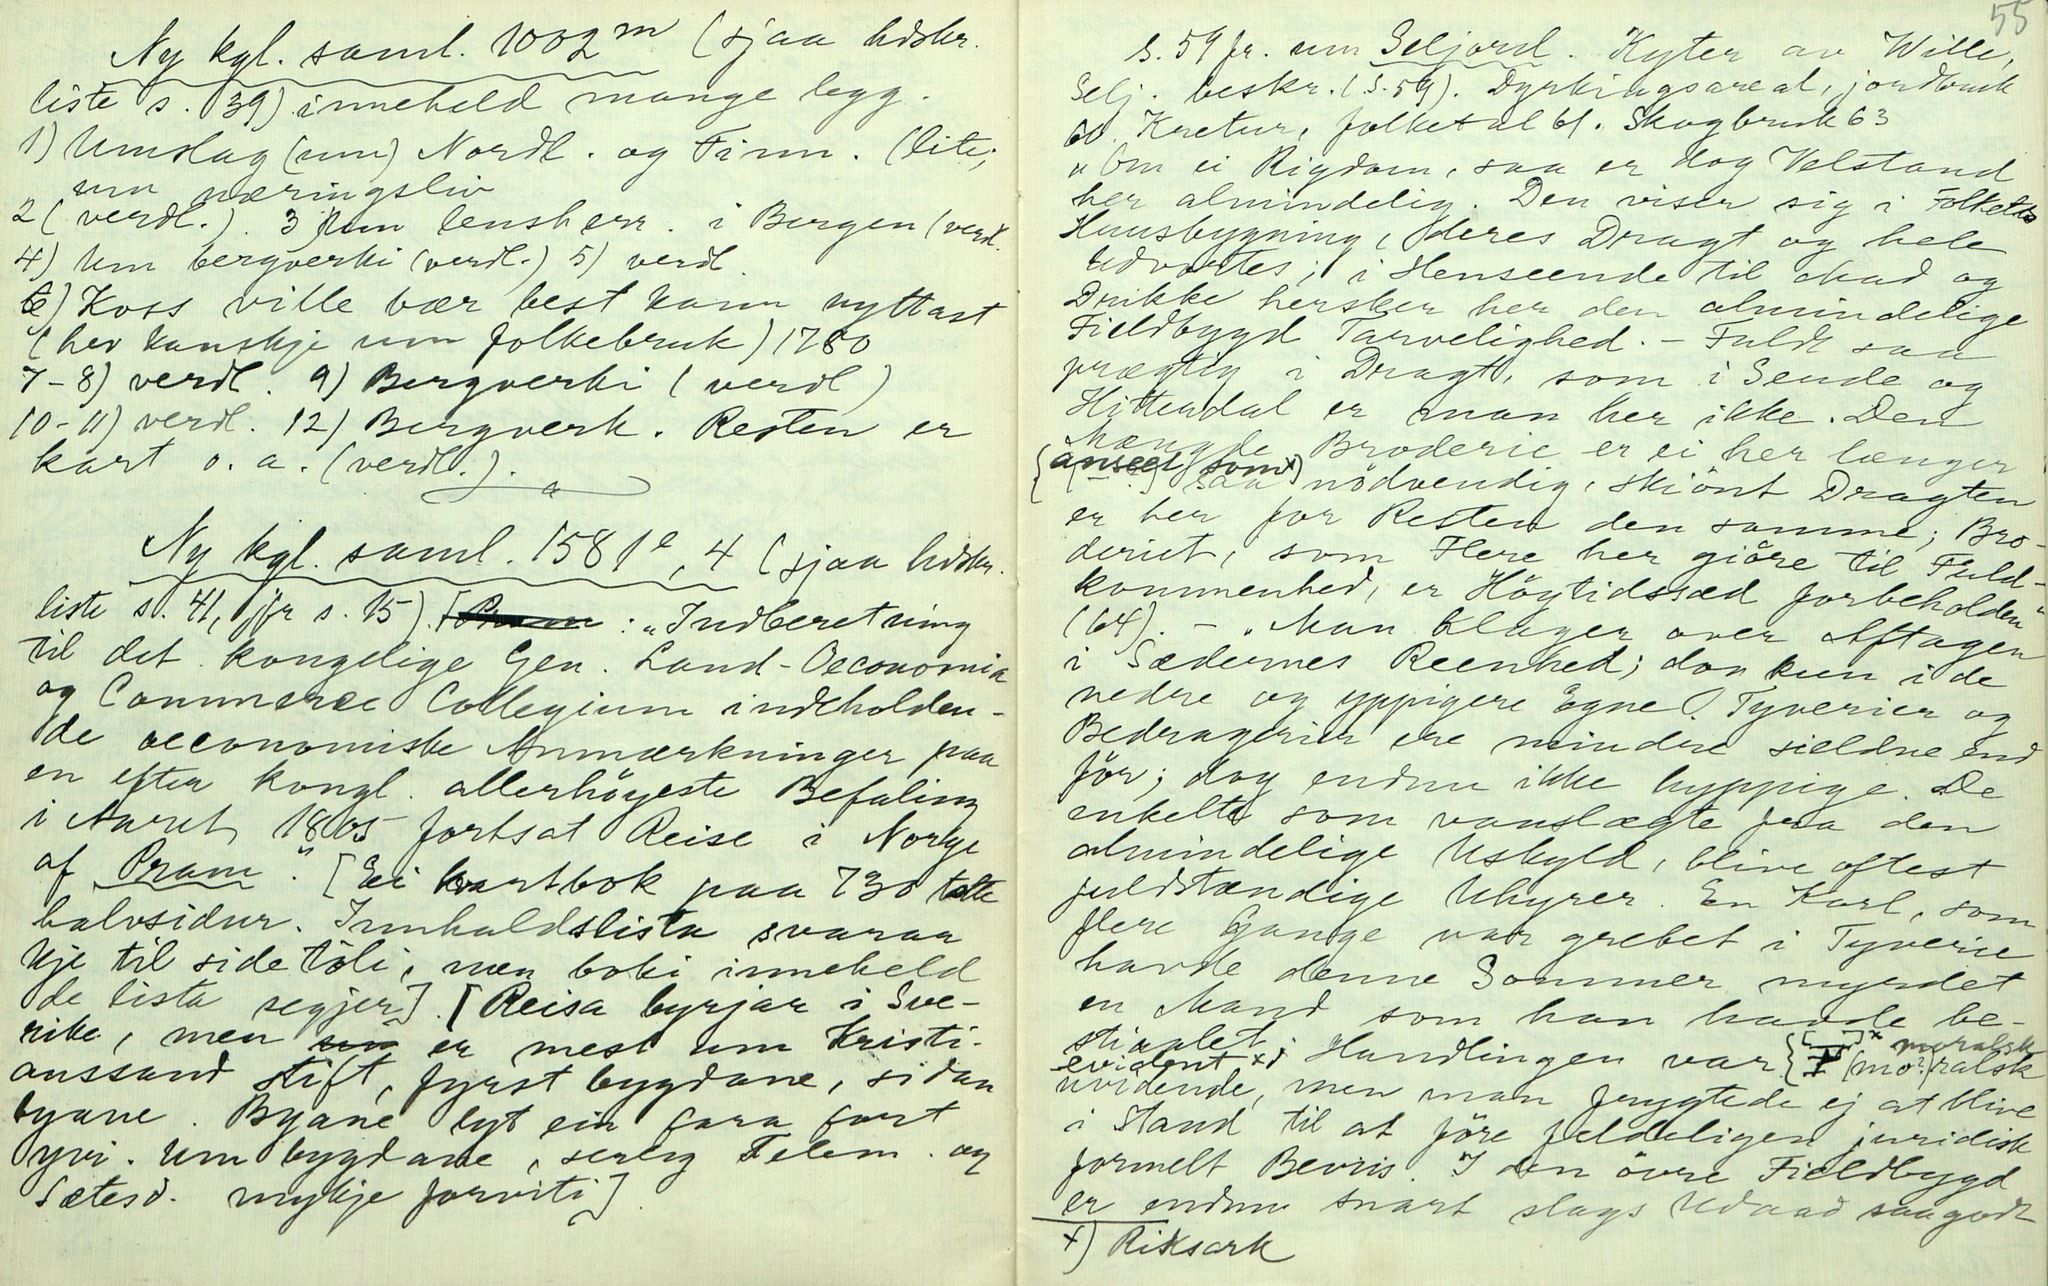 Ny kgl. saml. 1002 m (sjaa hdskr.
liste s. 39) inneheld mange legg.
1) Umslag (um) Nordl. og Finn. (lite;
um næringsliv
2 (verdl.). 3) Um lensherr. i Bergen (verdl.
4) Um bergverki (verdl.) 5) verdl.
6) Koss ville bær best kann nyttast
(her kanskje um folkebruk) 1780
7-8) verdl. 9) Bergverki (verdl)
10-11) verdl. 12) Bergverk. Resten er
kart o. a. (verdl.).
Ny kgl. saml. 1581 e, 4 (sjaa hdskr.
liste s. 41, jfr s. 15). [Pram: "Indberetning
til det kongelige Gen. Land-Oeconomie
og Commerce Collegium indeholden-
de oeconomiske Anmærkninger paa
en efter kongl. allerhöyeste Befaling
i Aaret 1805 fortsat Reise i Norge
af Pram". [Ei kvartbok paa 730 tette
halvsidur. Innhaldslista svarar
kje til sidetöli, men boki inneheld
de lista segjer]. [Reisa byrjar i Sve-
rike, men er mest um Kristi-
anssand stift, fyrst bygdane, sidan
byane. Byane lyt ein fara fort
yvi. Um bygdane, serleg Telem. og
Sætesd. mykje forviti]
55
S. 59 fr. um Seljord. Kyter av Wille,
Selj. beskr. (s. 59). Dyrkingsareal, jordbruk
60. Kretur, folketal 61. Skogbruk 63
"Om ei Rigdom, saa er dog Velstand
her almindelig. Den viser sig i Folkets
Huusbygning, deres Dragt og hele
Udvortes; i Henseende til Mad og
Drikke hersker her den almindelige
Fieldbygd Tarvelighed. - Fuldt saa
prægtig i Dragt, som i Sende og
Hitterdal er man her ikke. Den
Mængde Broderie er ei her længer
{anseet (som x)
saa nödvendig, skiönt Dragten
er her for Resten den samme; Bro-
deriet, som Flere her giöre til Fuld-
kommenhed, er Höytidssæd forbeholden"
(64). - "Man klager over Aftagen
i Sædernes Reenhed; dog kun i de
nedre og yppigere Egne. Tyverier og
Bedragerier ere mindre sieldne end
för; dog endnu ikke hyppige. De
enkelte som vanslægte fra den
almindelige Uskyld, blive oftest
fuldstændige Uhyrer. En Karl, som
flere Gange var grebet i Tyverie
havde denne Sommer myrdet
en Mand som han havde be-
stiaalet; Handlingen var { [ ]x moralsk
(mo?)ralsk
evident x)
uvidende, men man frygtede ej at blive
i Stand til at före fuldeligen juridisk
formelt Beviis. I den övre Fieldbygd
er endnu snart slags Udaad saagodt
x) Riksark